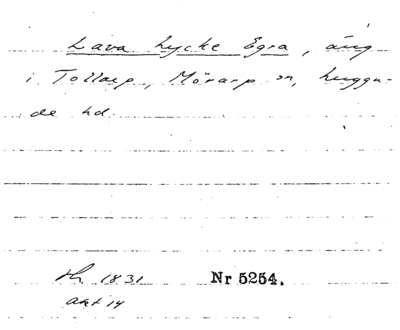 Lava Lycke Egra, äng
i Tollarp, Mörarp sn, Luggu-
de hd.
1831 Nr 5254.
akt 14